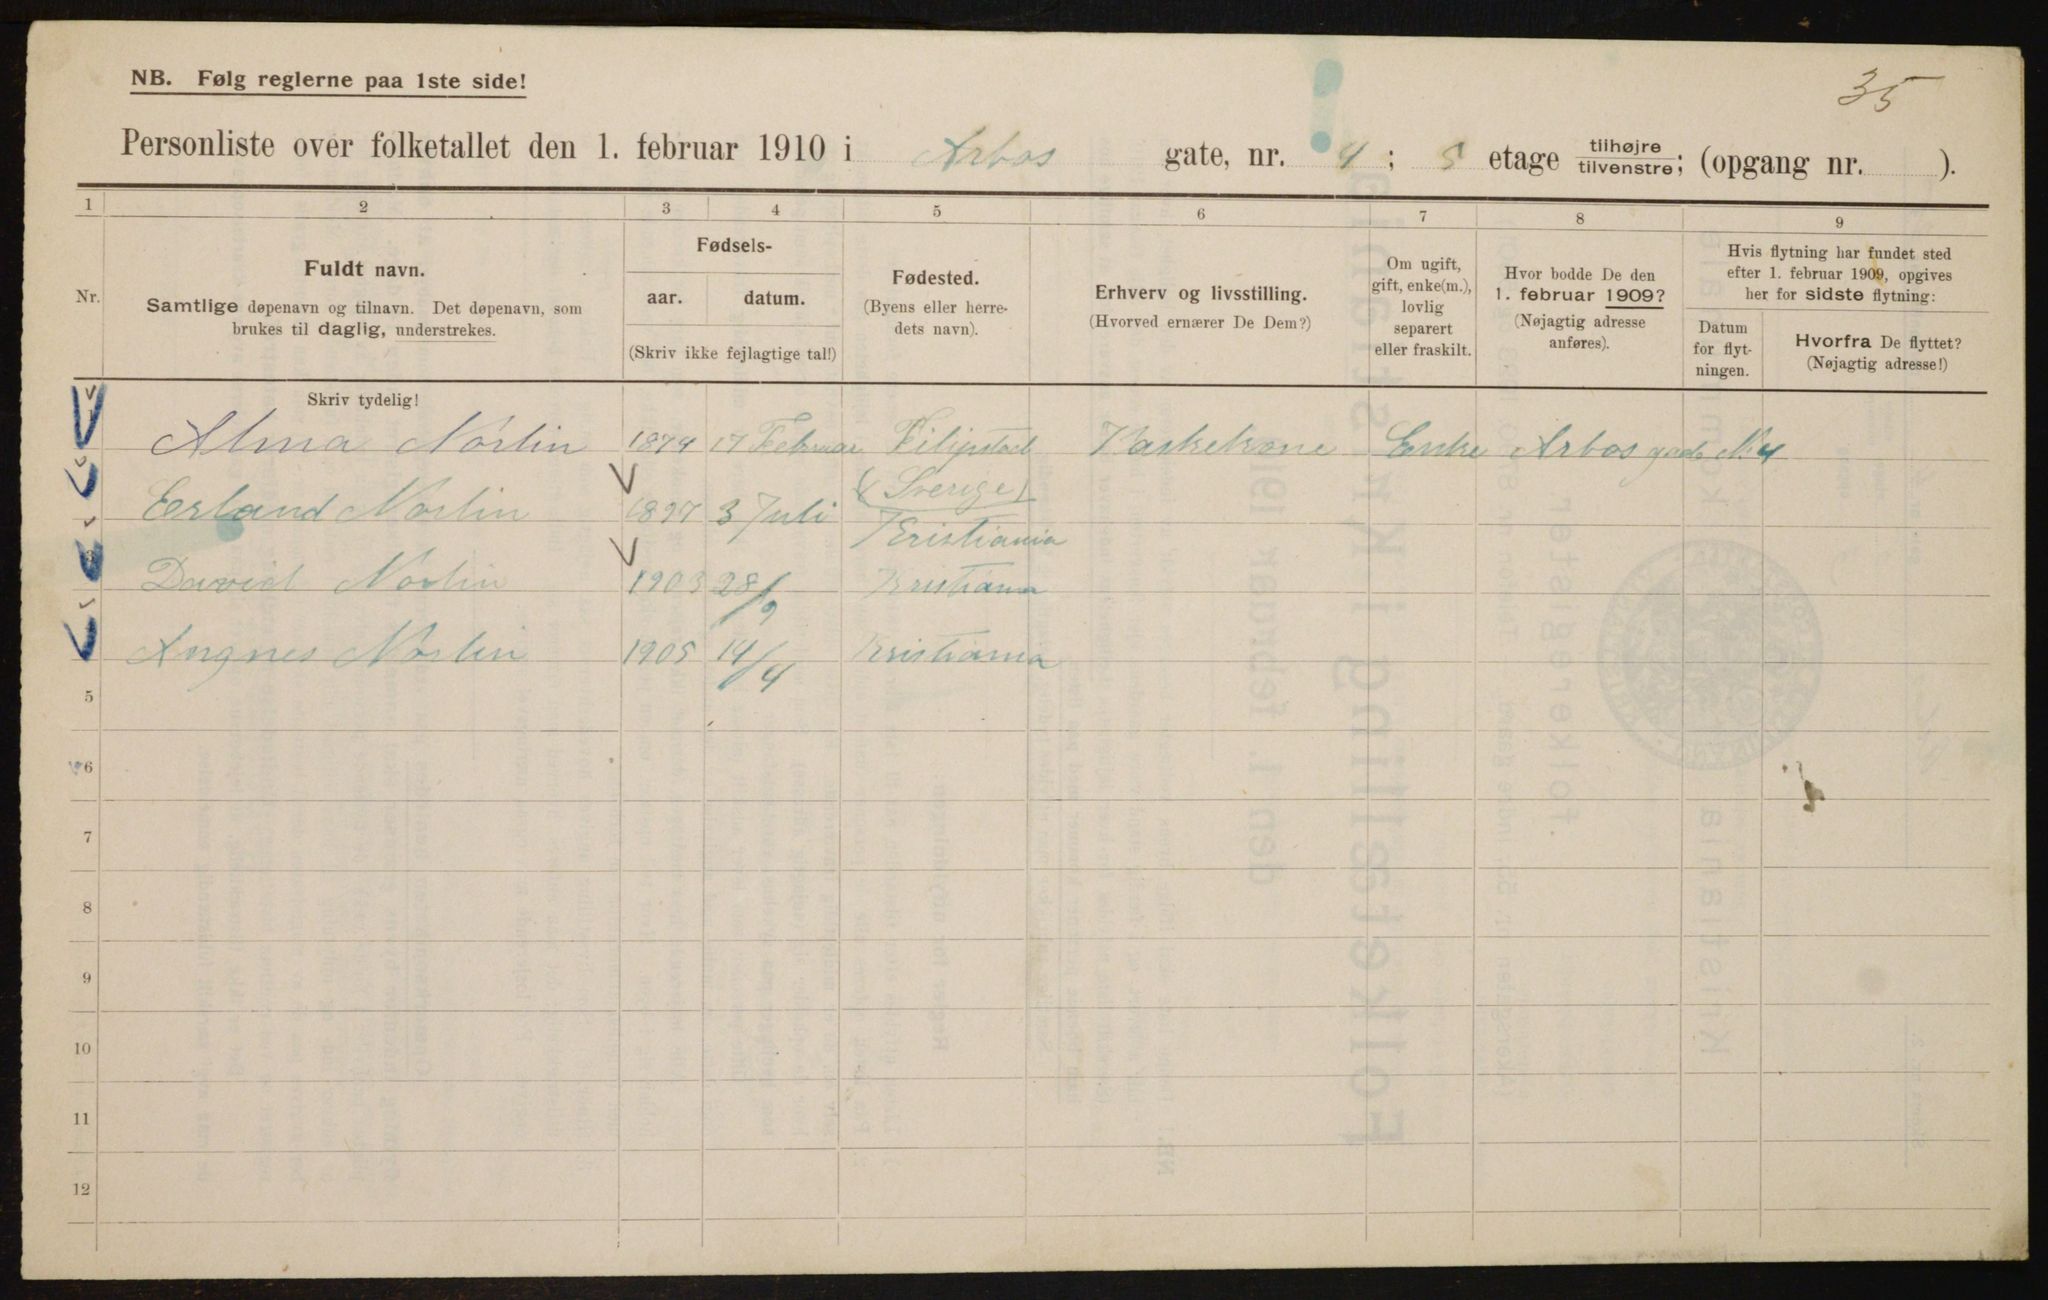 35
NB. Følg reglerne paa 1ste side!
Personliste over folketallet den 1. februar 1910 i Arbos gate, nr. 4; 5 etage tilhøjre/tilvenstre; (opgang nr. ).
1 2 3 4 5 6 7 8 9
Nr.
Fuldt navn.
Samtlige døpenavn og tilnavn. Det døpenavn, som
brukes til daglig, understrekes.
Fødsels-
aar. datum.
(Skriv ikke fejlagtige tal!)
Fødested.
(Byens eller herre-
dets navn).
Erhverv og livsstilling.
(Hvorved ernærer De Dem?)
Om ugift,
gift, enke(m.),
lovlig
separert
eller fraskilt.
Hvor bodde De den
1. februar 1909?
(Nøjagtig adresse
anføres).
Hvis flytning har fundet sted
efter 1. februar 1909, opgives
her for sidste flytning:
Datum
for flyt-
ningen.
Hvorfra De flyttet?
(Nøjagtig adresse!)
Skriv tydelig!
1 Alma Nórlin 1874 17 Februar Filipstad Vaskekone Enke Arbos gade No 4
(Sverige)
Erland Norlin 1897 3 Juli Kristiania
3 David Norlin 1903 28/9 Kristiania
Angnes Norlin 1905 14/4 Kristiania
5
6
7
8
9
10
11
12